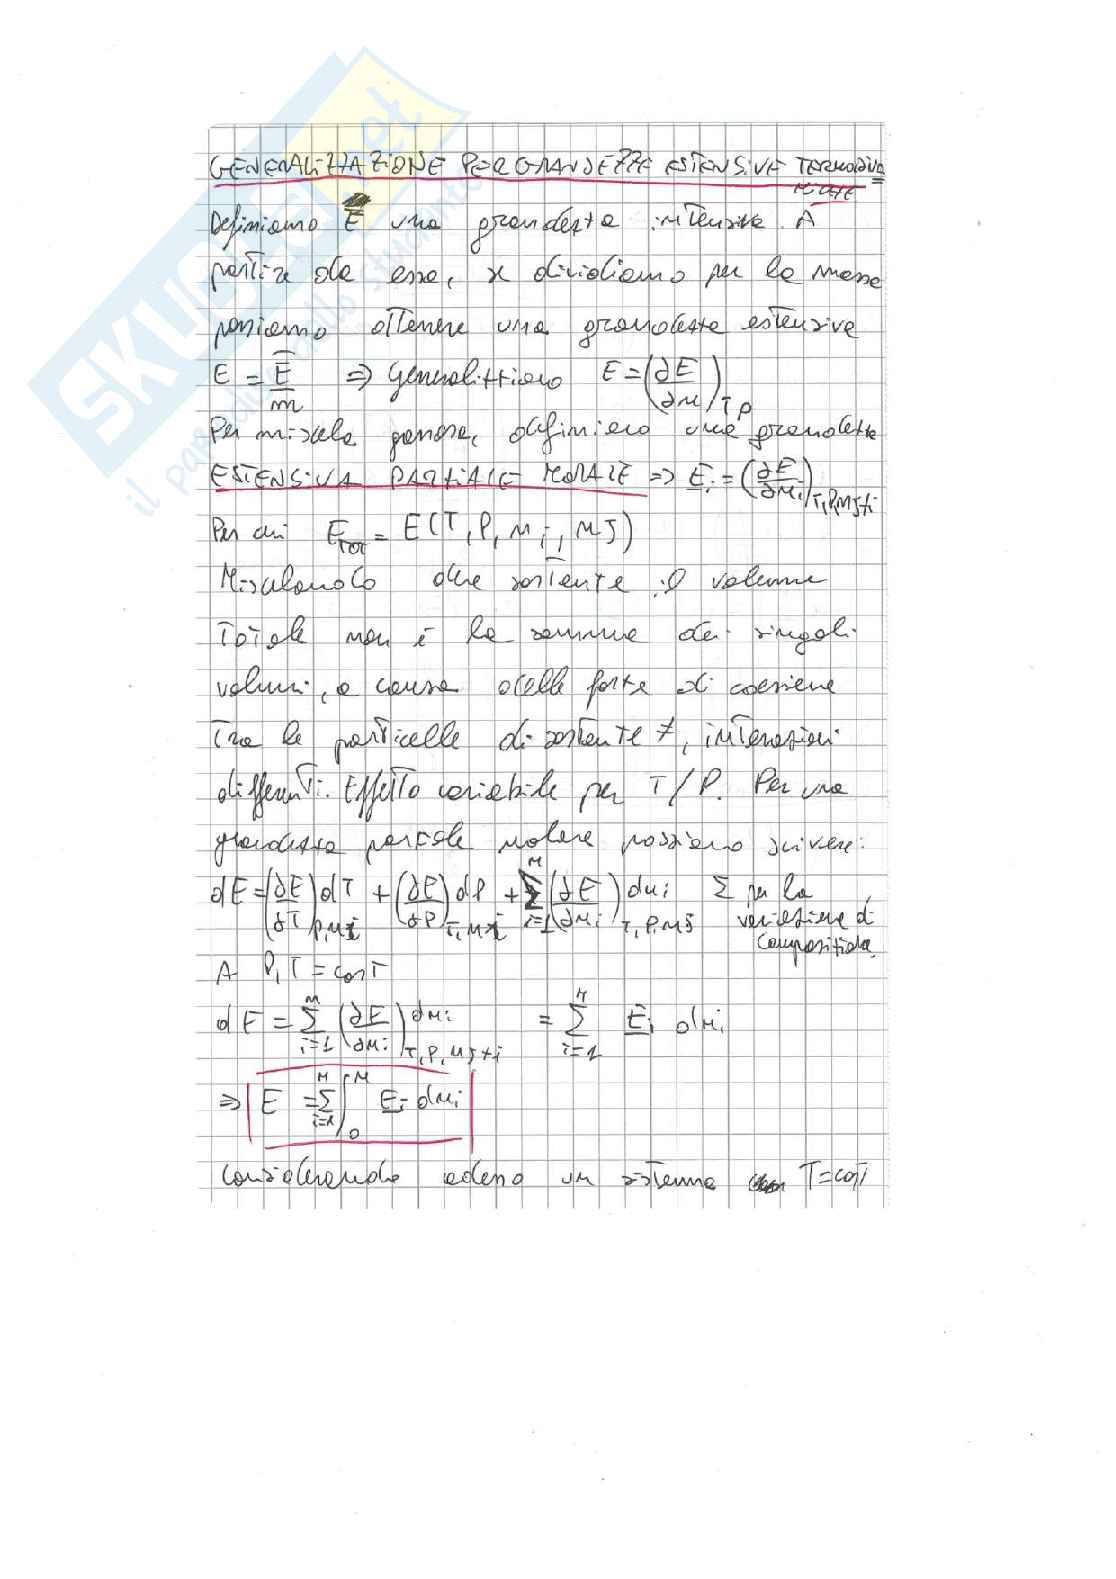 SKUOLA.net
il paradiso dello studente
GENERALIZZAZIONE PER GRANDEZZE ESTENSIVE TERMODINA
MICHE
Definiamo E una grandezza intensiva. A
partire da essa, se dividiamo per la massa
possiamo ottenere una grandezza estensiva
E = Ē/m ⇒ Generalizziamo E = (∂E/∂n)T P
Per miscela gassosa, definiamo una grandezza
ESTENSIVA PARZIALE MOLARE ⇒ E̲i = (∂E/∂ni)T,P,nj≠i
Per cui ETOT = E(T, P, ni, nJ)
Miscelando due sostanze il volume
Totale non è la somma dei singoli
volumi, a causa delle forze di coesione
Tra le particelle di sostanze ≠, interazioni
differenti. Effetto variabile per T/P. Per una
grandezza parziale molare possiamo scrivere:
dE = (∂E/∂T)P,ni dT + (∂E/∂P)T,ni dP + Σ i=1 n (∂E/∂ni)T,P,nj dni Σ per la
variazione di
composizione
A P, T = cosT
dE = Σ i=1 n (∂E/∂ni)T,P,nj≠i dni = Σ i=1 n E̲i dni
⇒ E = Σ i=1 n ∫0 n E̲i dni
Considerando adesso un sistema T = cosT